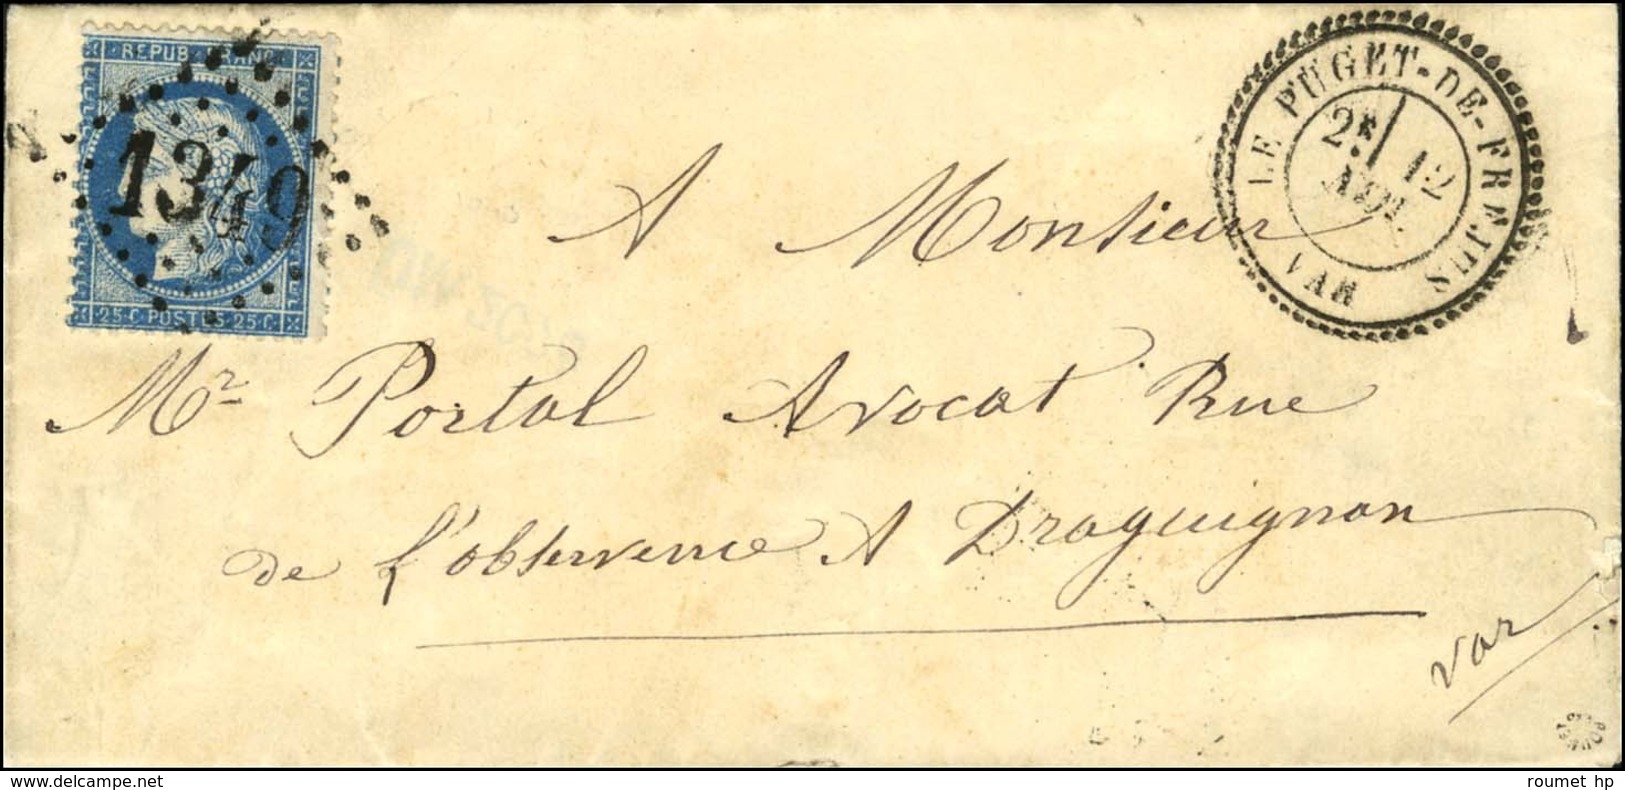 REPUB. FRANC.
1349
25·C POSTES 25·C
LE PUGET-DE-FRÉJUS
2E
12
VAR
A Monsieur
Mr Portal Avocat Rue
de l'observence A Draguignan
var
roumet hp